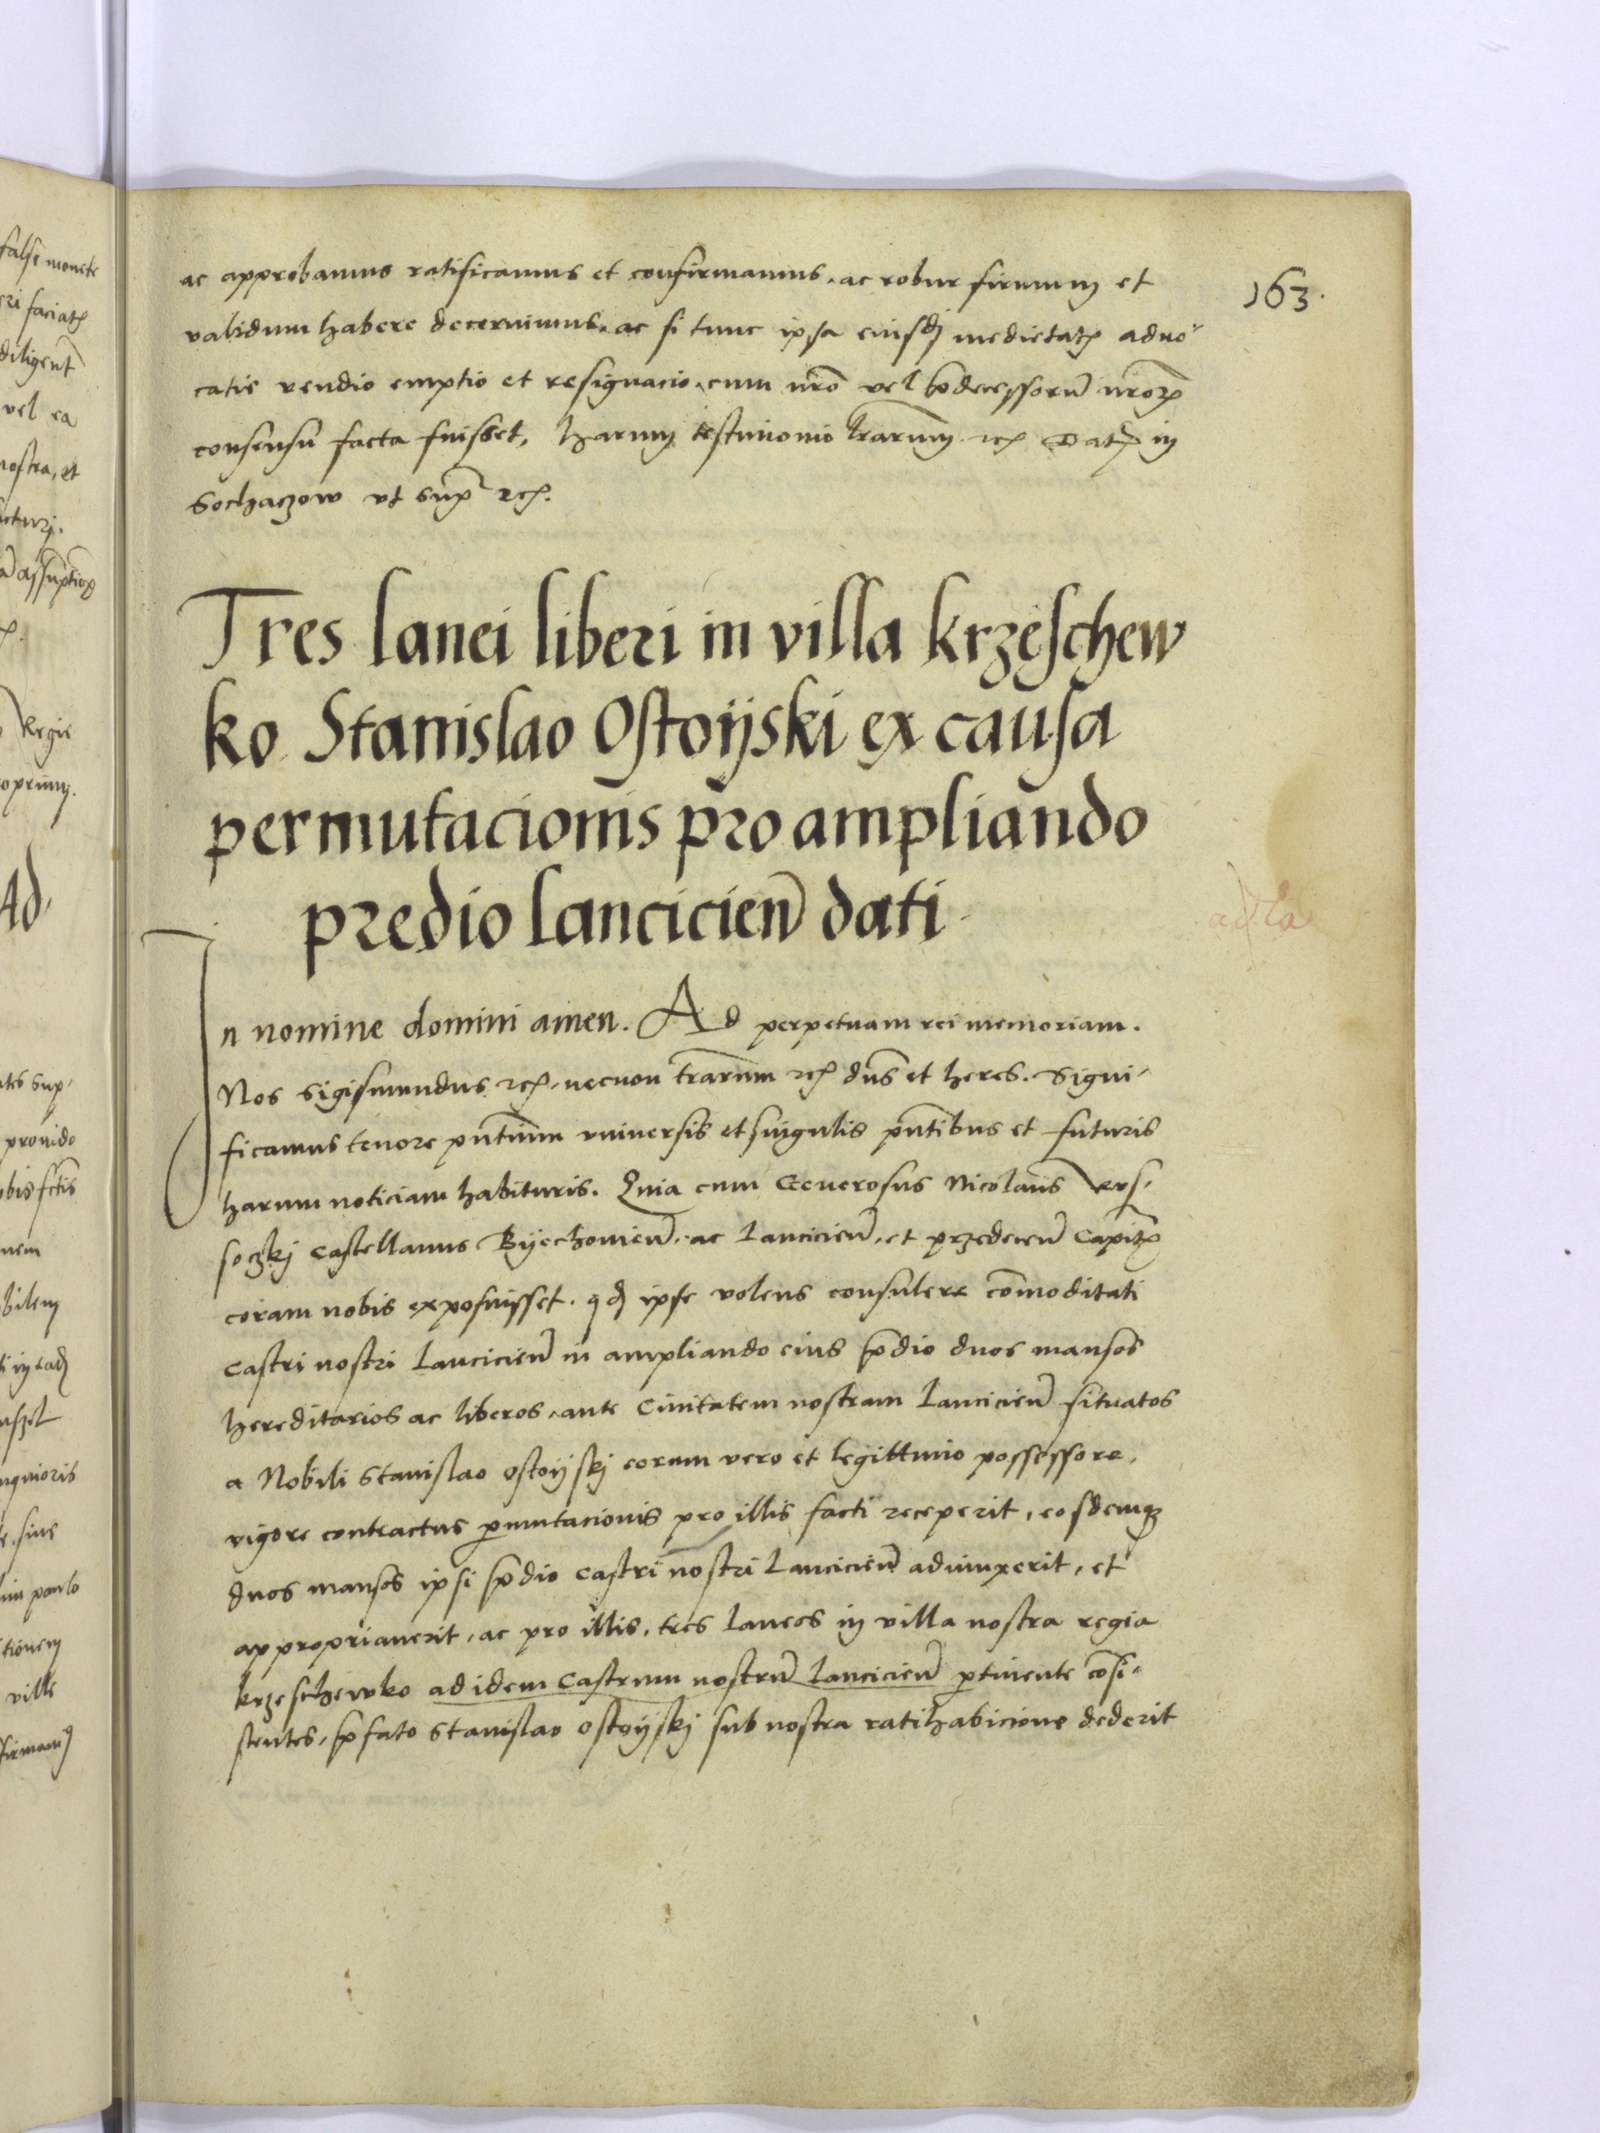 163.
ac approbamus ratificamus et confirmamus. ac robur firmum et
validum habere decernimus. ac si tunc ipsa eiusdj medietatꝭ advo-
catie vendio emptio et resignacio. cum nrō vel pdecessorū nrōꝝ
consensu facta fuisset, harum testimonio lrarum rcꝭ Datꝭ in
Sochaczow vt sup̄ rcꝭ.
Tres lanei liberi in villa krzeschew
ko. Stanislao Ostoijski ex causa
permutacionis pro ampliando
predio lancicien̄ dati
In nomine domini amen. Ad perpetuam rei memoriam.
Nos Sigismundus rcꝭ. necnon trarum rcꝭ dn̄s et heres. Signi-
ficamus tenore pn̄tium vniversis et singulis pn̄tibus et futuris
harum noticiam habituris. Quia cum Generosus Nicolaus Rus-
soczkj Castellanus Bijechowien̄. ac Lanciciен̄. et przedecen̄ Capitꝭ
coram nobis exposuisset. qd ipse volens consulere com̄oditati
Castri nostri Lanciciен̄ in ampliando eius p̄dio duos mansos
hereditarios ac liberos, ante Civitatem nostram Lanciciен̄ situatos
a Nobili Stanislao Ostoijskj eorum vero et legittimo possessore,
vigore contractus p̱mutacionis pro illis facti receperit, eosdemqꝫ
duos mansos ipsi p̄dio Castri nostri Lanciciен̄ adiunxerit, et
appropriaverit, ac pro illis, tres laneos in villa nostra regia
krzeschewko ad idem Castrum nostrū Lanciciен̄ p̱tinente cōsi-
stentes, p̄fato Stanislao Ostoijskj sub nostra ratihabicione dederit